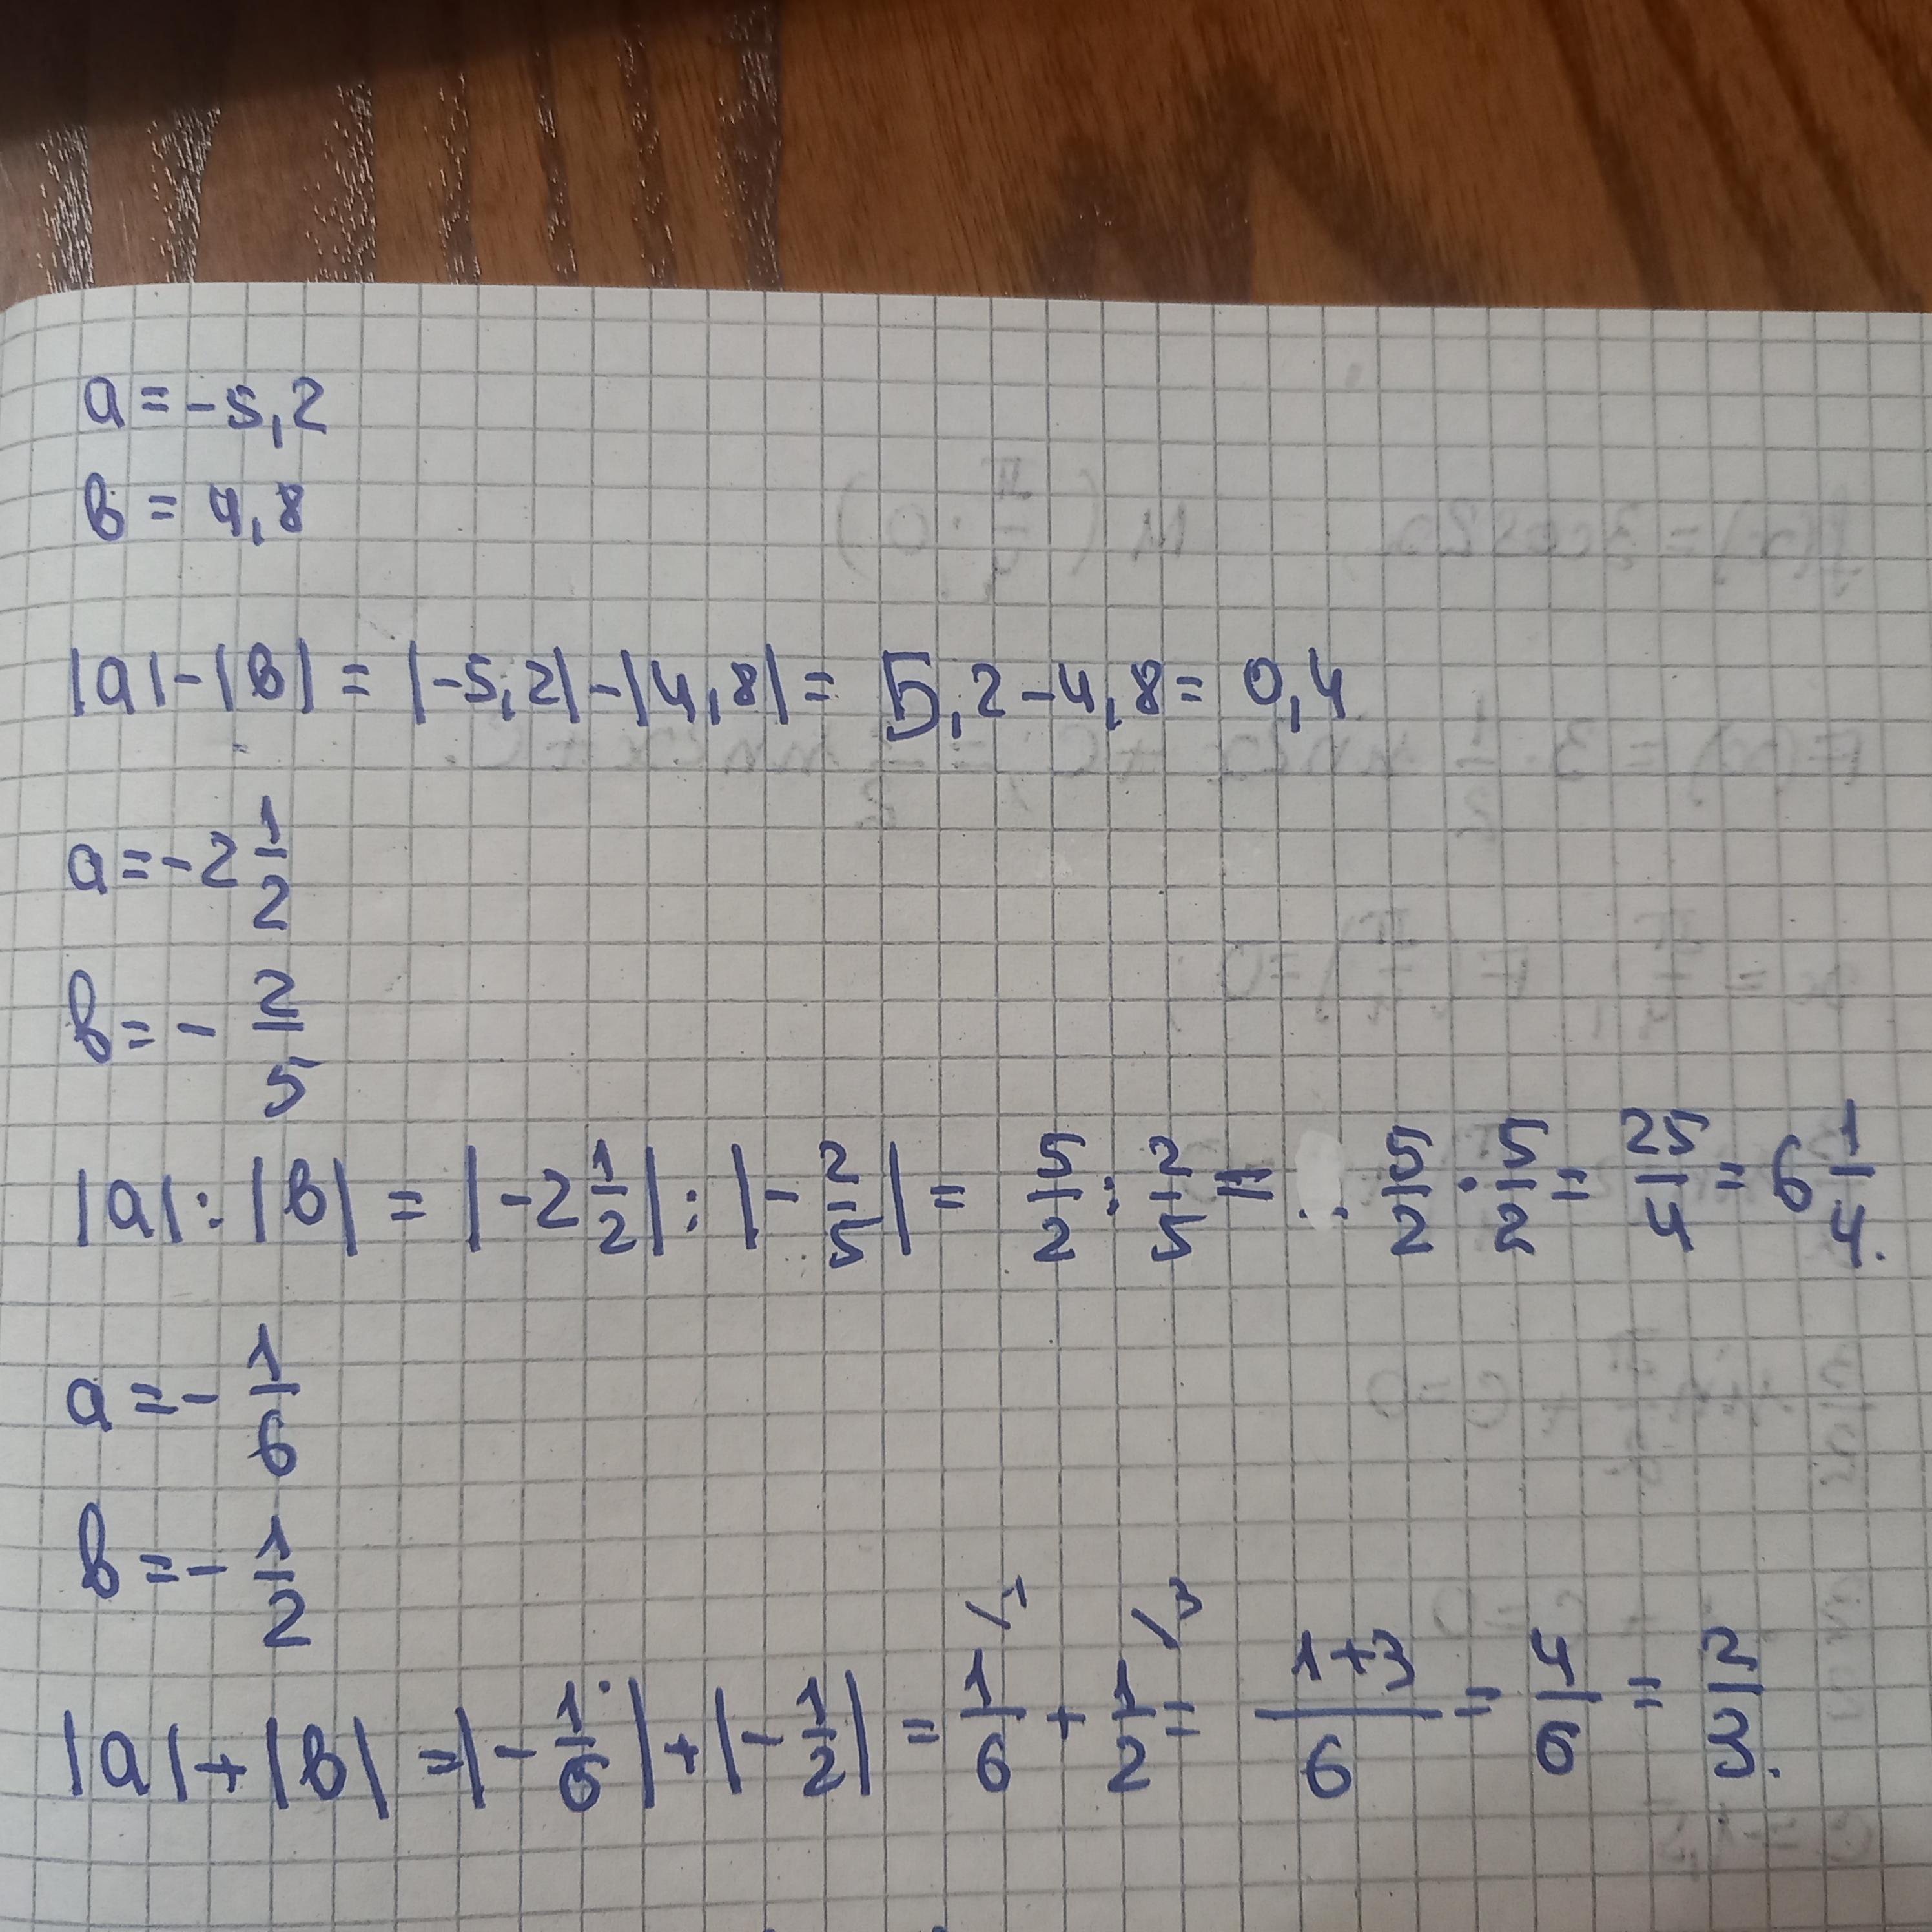 a = -5,2
в = 4,8
|a| - |в| = |-5,2| - |4,8| = 5,2 - 4,8 = 0,4
a = -2 1/2
в = - 2/5
|a| : |в| = |-2 1/2| : |- 2/5| = 5/2 : 2/5 = 5/2 · 5/2 = 25/4 = 6 1/4.
a = - 1/6
в = - 1/2
|a| + |в| = |- 1/6| + |- 1/2| = 1/6 \1 + 1/2 \3 = (1+3)/6 = 4/6 = 2/3.